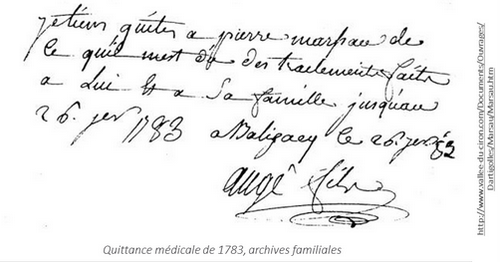 jetiens quites a pierre marsau de
ce quil mest dû des traitements faits
a Lui et a Sa famille jusquau
26. jer 1783 a Baligacq le 26 jer 83
augé fils
Quittance médicale de 1783, archives familiales
http://www.vallee-du-ciron.com/Documents/Ouvrages/
Dartigolles/Marsau/Marsau.htm